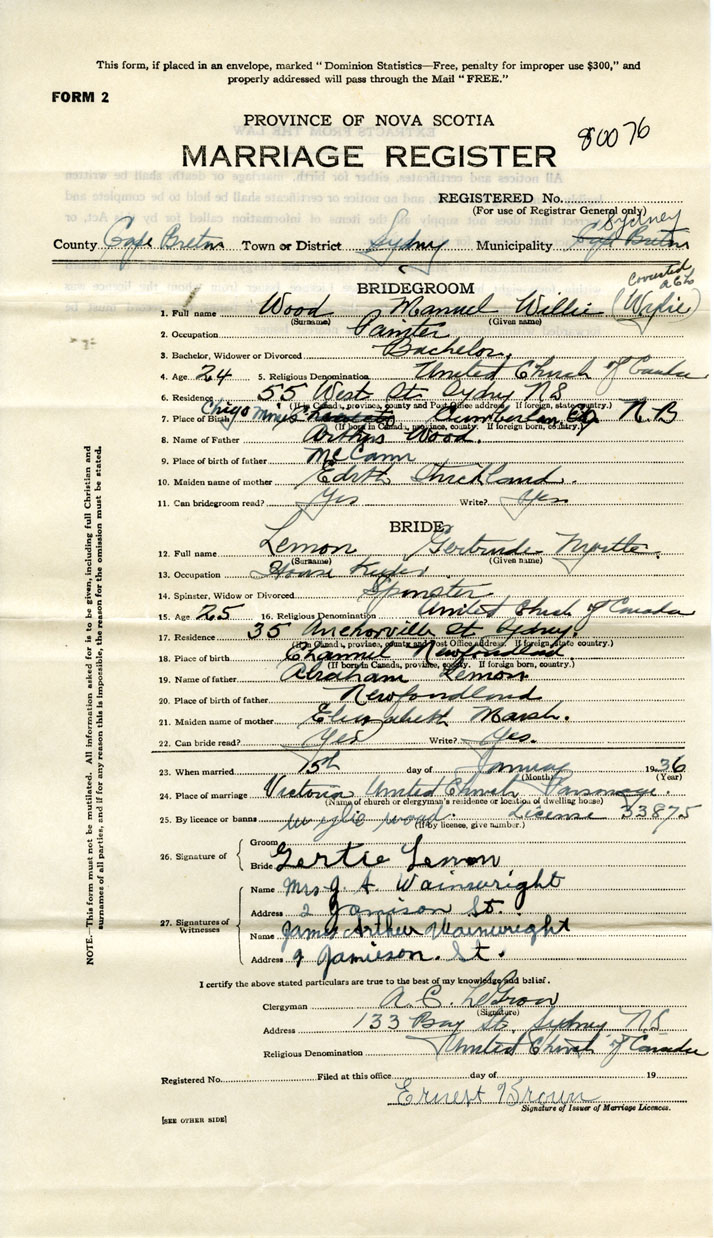 This form, if placed in an envelope, marked "Dominion Statistics—Free, penalty for improper use $300," and
properly addressed will pass through the Mail "FREE."
FORM 2
PROVINCE OF NOVA SCOTIA
80076
MARRIAGE REGISTER
REGISTERED No.
(For use of Registrar General only)
Sydney
County Cape Breton Town or District Sydney Municipality Cape Breton
BRIDEGROOM
1. Full name Wood Manuel Willie (Wylie)
(Surname) (Given name)
2. Occupation Painter
3. Bachelor, Widower or Divorced Bachelor
4. Age 24 5. Religious Denomination United Church of Canada
6. Residence 55 West St. Sydney N S
(If in Canada, province, county and Post Office address. If foreign, state country.)
7. Place of Birth Mines Cumberland Co N B
(If born in Canada, province, county. If foreign born, country.)
8. Name of Father Arthur Wood.
9. Place of birth of father McCann
10. Maiden name of mother Edith Strickland.
11. Can bridegroom read? Yes Write? Yes
BRIDE
12. Full name Lemon Gertrude Myrtle.
(Surname) (Given name)
13. Occupation House Keeper
14. Spinster, Widow or Divorced Spinster
15. Age 25 16. Religious Denomination United Church of Canada
17. Residence 35 Anchorville St Sydney.
(If in Canada, province, county and Post Office Address. If foreign, state country.)
18. Place of birth Channel Newfoundland
(If born in Canada, province, county. If foreign born, country.)
19. Name of father Abraham Lemon
20. Place of birth of father Newfoundland
21. Maiden name of mother Elizabeth Marsh.
22. Can bride read? Yes Write? Yes.
23. When married 15th day of January 1936
(Month) (Year)
24. Place of marriage Victoria United Church Parsonage.
(Name of church or clergyman's residence or location of dwelling house)
25. By licence or banns License 33875
(If by licence, give number.)
wylie wood.
26. Signature of Groom
Bride Gertie Lemon
27. Signatures of Witnesses
Name Mrs. J. A. Wainwright
Address 2 Jamison St.
Name James Arthur Wainwright
Address 9 Jamieson. St.
I certify the above stated particulars are true to the best of my knowledge and belief.
Clergyman A. C. LeGrow
(Signature)
Address 133 Bay St. Sydney N S
Religious Denomination United Church of Canada
Registered No. Filed at this office day of 19
Ernest Brown
Signature of Issuer of Marriage Licences.
[SEE OTHER SIDE]
NOTE.—This form must not be mutilated. All information asked for is to be given, including full Christian and
surnames of all parties, and if for any reason this is impossible, the reason for the omission must be stated.